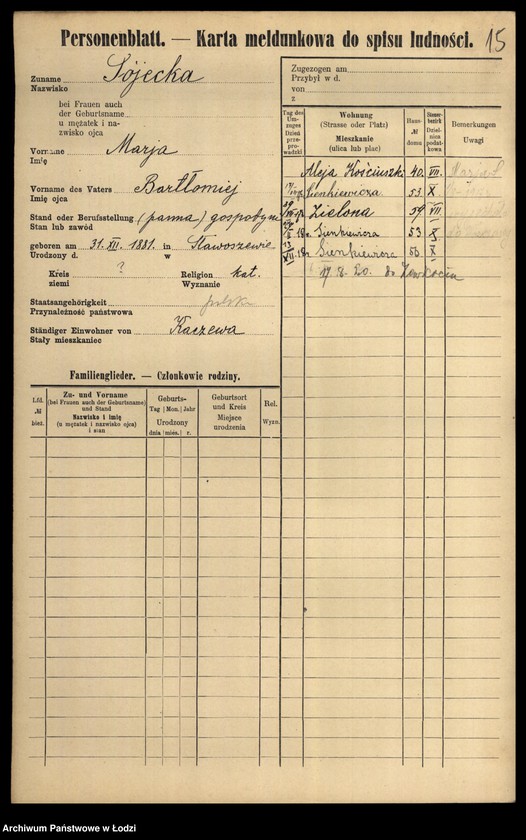 Personenblatt. — Karta meldunkowa do spisu ludności. 15
Zuname Sójecka
Nazwisko
bei Frauen auch
der Geburtsname
u mężatek i na-
zwisko ojca
Vorname Marja
Imię
Vorname des Vaters Bartłomiej
Imię ojca
Stand oder Berufsstellung (panna) gospodyni
Stan lub zawód
geboren am 31. XII. 1881. in Sławoszewie
Urodzony d. w
Kreis ?
ziemi
Religion kat.
Wyznanie
Staatsangehörigkeit polska
Przynależność państwowa
Ständiger Einwohner von Kaczewa
Stały mieszkaniec
Zugezogen am
Przybył w d.
von
z
Tag des Um-zuges
Dzień przeprowadzki
Wohnung
(Strasse oder Platz)
Mieszkanie
(ulica lub plac)
Haus-
№
domu
Steuer-bezirk
Dzielnica podatkowa
Bemerkungen
Uwagi
Aleja Kościuszki 40. VII.
Sienkiewicza 53. X
Zielona 59 VII.
Sienkiewicza 53 X
Sienkiewicza 53. X
17. 8. 20. do
Familienglieder. — Członkowie rodziny.
Lfd.
№
bież.
Zu- und Vorname
(bei Frauen auch der Geburtsname)
und Stand
Nazwisko i imię
(u mężatek i nazwisko ojca)
i stan
Geburts-
Tag Mon. Jahr
Urodzony
dnia mies. r.
Geburtsort
und Kreis
Miejsce
urodzenia
Rel.
Wyzn.
Archiwum Państwowe w Łodzi